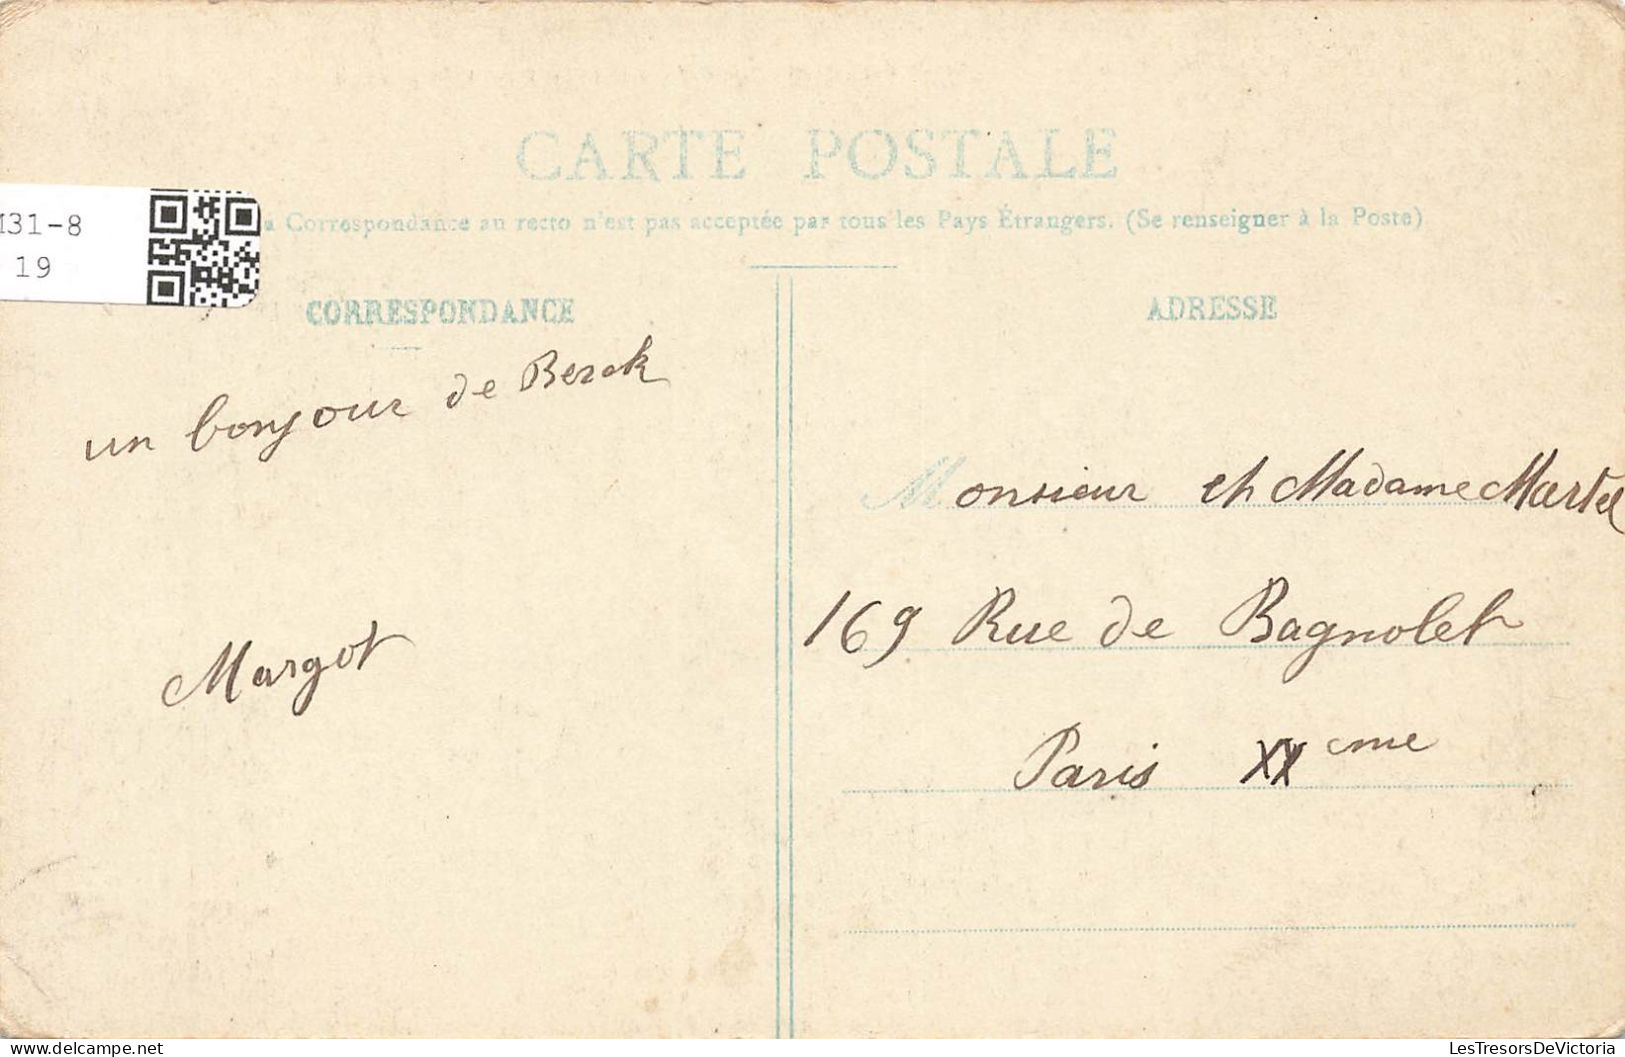 CARTE POSTALE
Correspondance au recto n'est pas acceptée par tous les Pays Étrangers. (Se renseigner à la Poste)
31-8
19
CORRESPONDANCE
un bonjour de Berck
Margot
ADRESSE
Monsieur et Madame Martel
169 Rue de Bagnolet
Paris XXeme
LesTresorsDeVictoria
delcampe.net